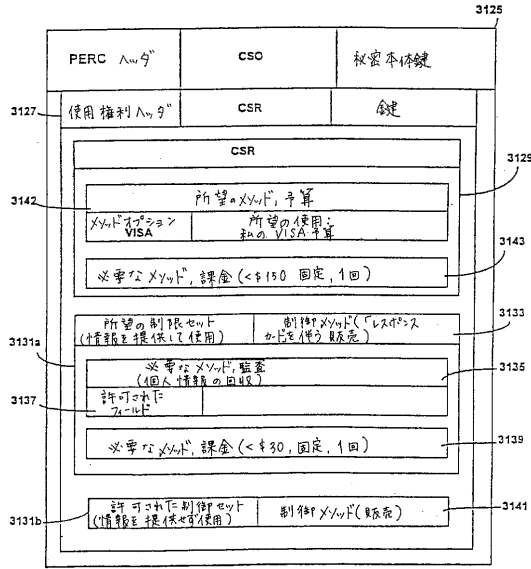 3125
PERC ヘッダ
CSO
秘密本体鍵
3127
使用権利ヘッダ
CSR
鍵
CSR
3129
3142
所望のメソッド, 予算
メソッドオプション
VISA
所望の使用:
私の VISA 予算
3143
必要なメソッド, 課金 (<$150 固定, 1回)
3133
所望の制限セット
(情報を提供して使用)
制御メソッド(「レスポンス
カードを伴う 販売)
3131a
3135
必要なメソッド, 監査
(個人情報の回収)
3137
許可された
フィールド
3139
必要なメソッド, 課金 (<$30, 固定, 1回)
3131b
許可された制御セット
(情報を提供せず使用)
制御メソッド(販売)
3141